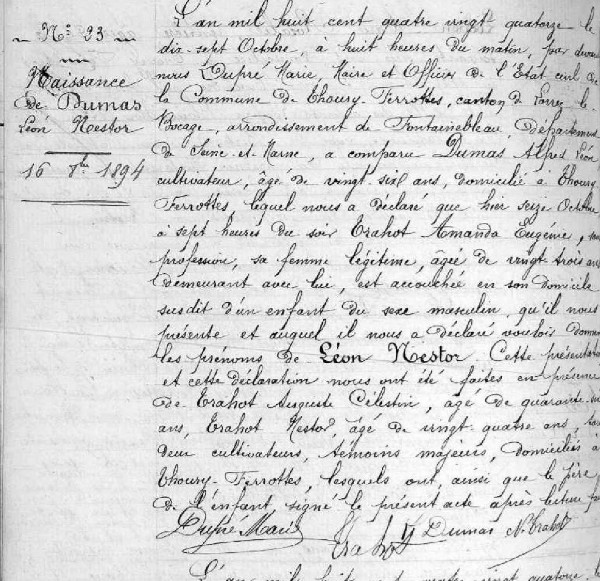 N° 23
Naissance
de Dumas
Léon Nestor
16 8bre 1894
L'an mil huit cent quatre vingt quatorze le
dix-sept Octobre, à huit heures du matin, par devant
nous Dupré Marie, Maire et Officier de l'Etat civil de
la Commune de Thoury-Ferrottes, canton de Lorrez-le-
Bocage, arrondissement de Fontainebleau, Département
de Seine-et-Marne, a comparu Dumas Alfred Léon
cultivateur, âgé de vingt-six ans, domicilié à Thoury-
Ferrottes, lequel nous a déclaré que hier seize Octobre
à sept heures du soir Trahot Amanda Eugénie, sans
profession, sa femme légitime, agée de vingt-trois ans
demeurant avec lui, est accouchée en son domicile
susdit d'un enfant du sexe masculin, qu'il nous
présente et auquel il nous a déclaré vouloir donner
les prénoms de Léon Nestor. Cette présentation
et cette déclaration nous ont été faites en présence
de Trahot Auguste Célestin, âgé de quarante
ans, Trahot Nestor, âgé de vingt-quatre ans, tous
deux cultivateurs, témoins majeurs, domiciliés à
Thoury-Ferrottes, lesquels ont, ainsi que le père
de l'enfant, signé le présent acte après lecture
Dupré Marie Trahot Dumas N. Trahot
L'an mil huit cent quatre vingt quatorze le